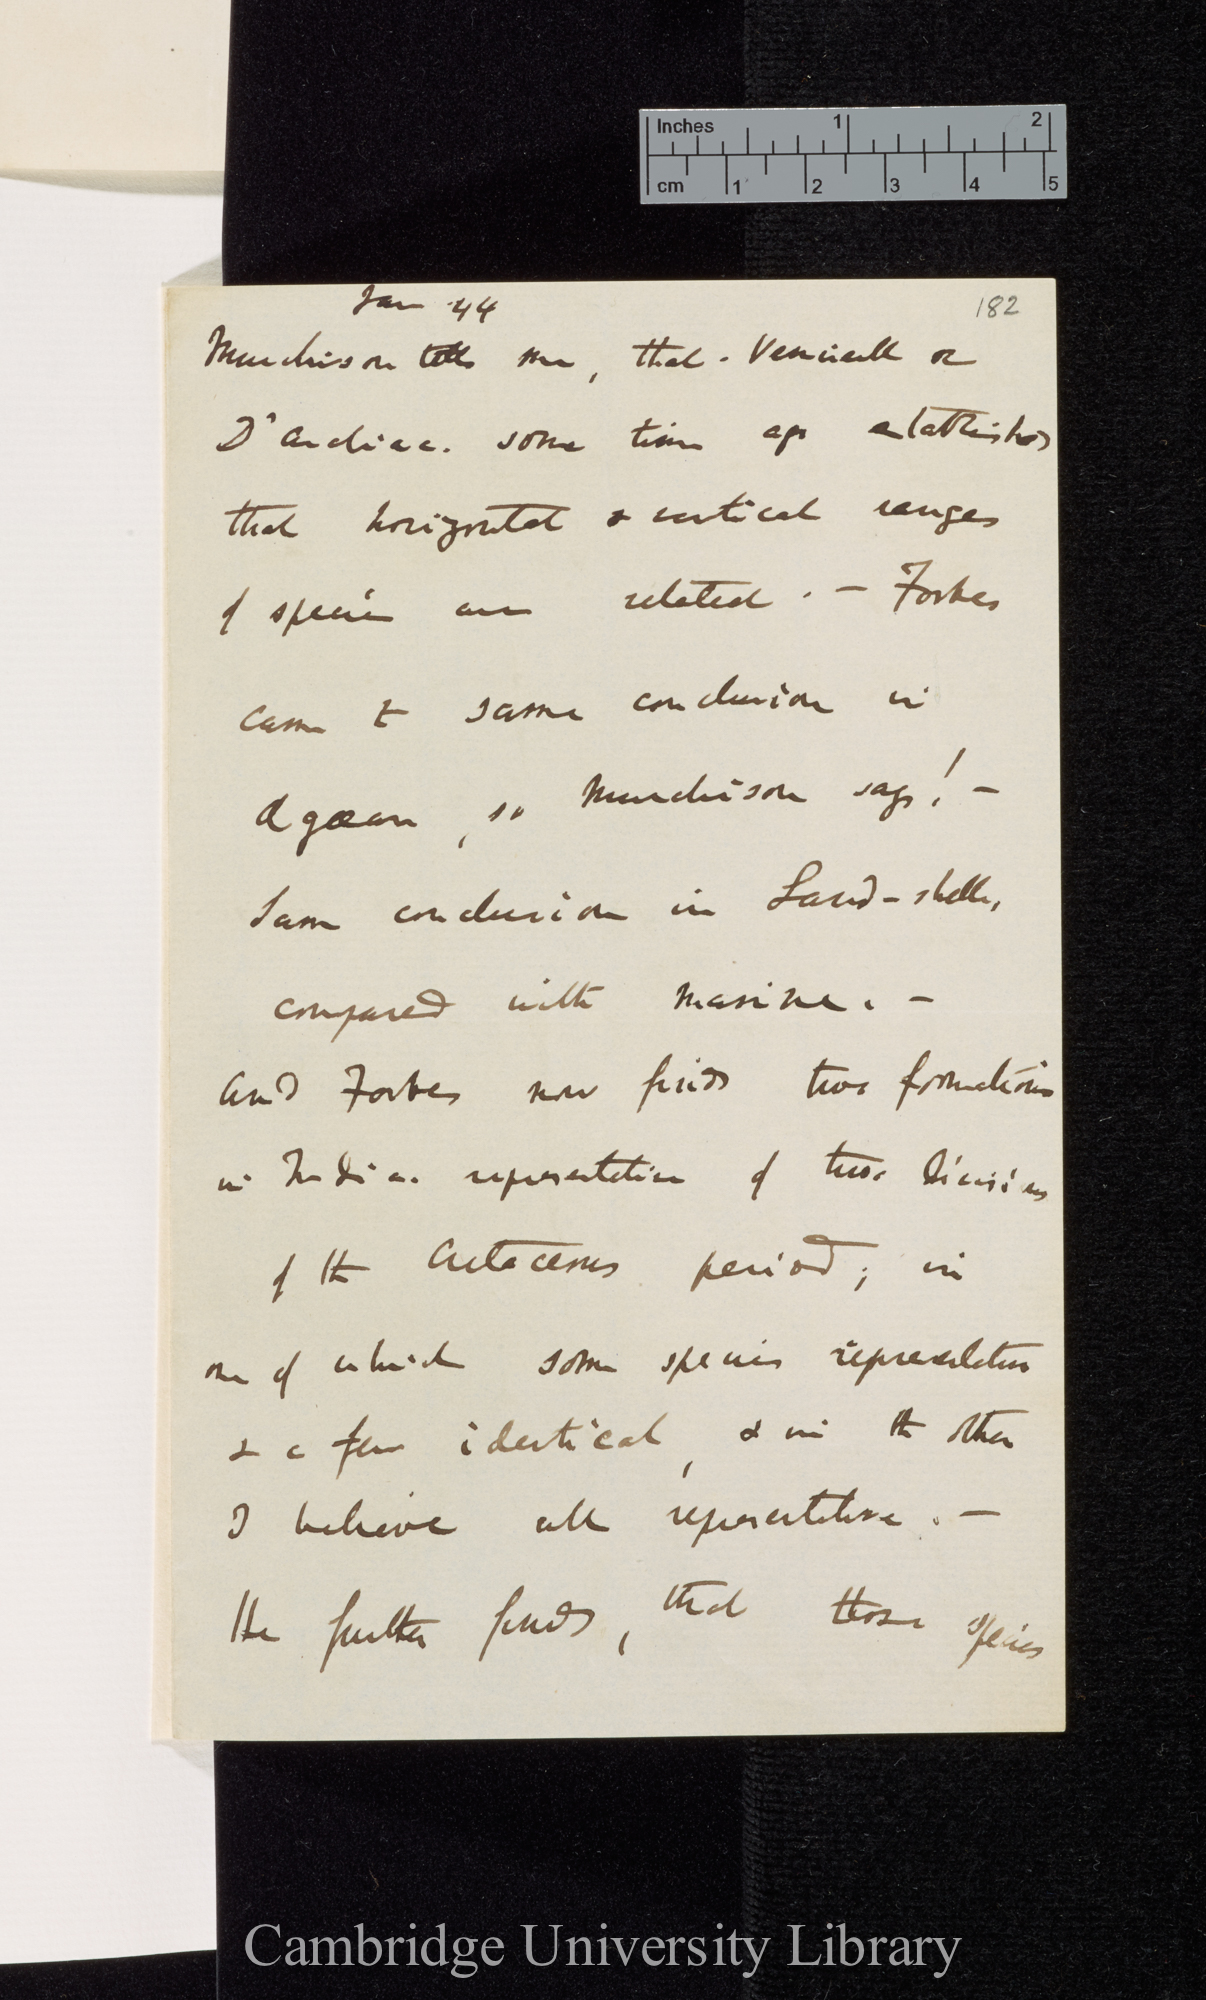 Inches 1 2
cm 1 2 3 4 5
Jan 44
182
Murchison tells me, that Verneuill or
D'Archiac. some time ago established
that horizontal & vertical ranges
of species are related. — Forbes
came to same conclusion in
Ægæan, so Murchison says! —
Same conclusion in Land-shells,
compared with marine. —
And Forbes now finds two formations
in India. representative of two divisions
of the Cretaceous period; in
one of which some species representative
& a few identical, & in the other
I believe all representative. —
He further finds, that those species
Cambridge University Library